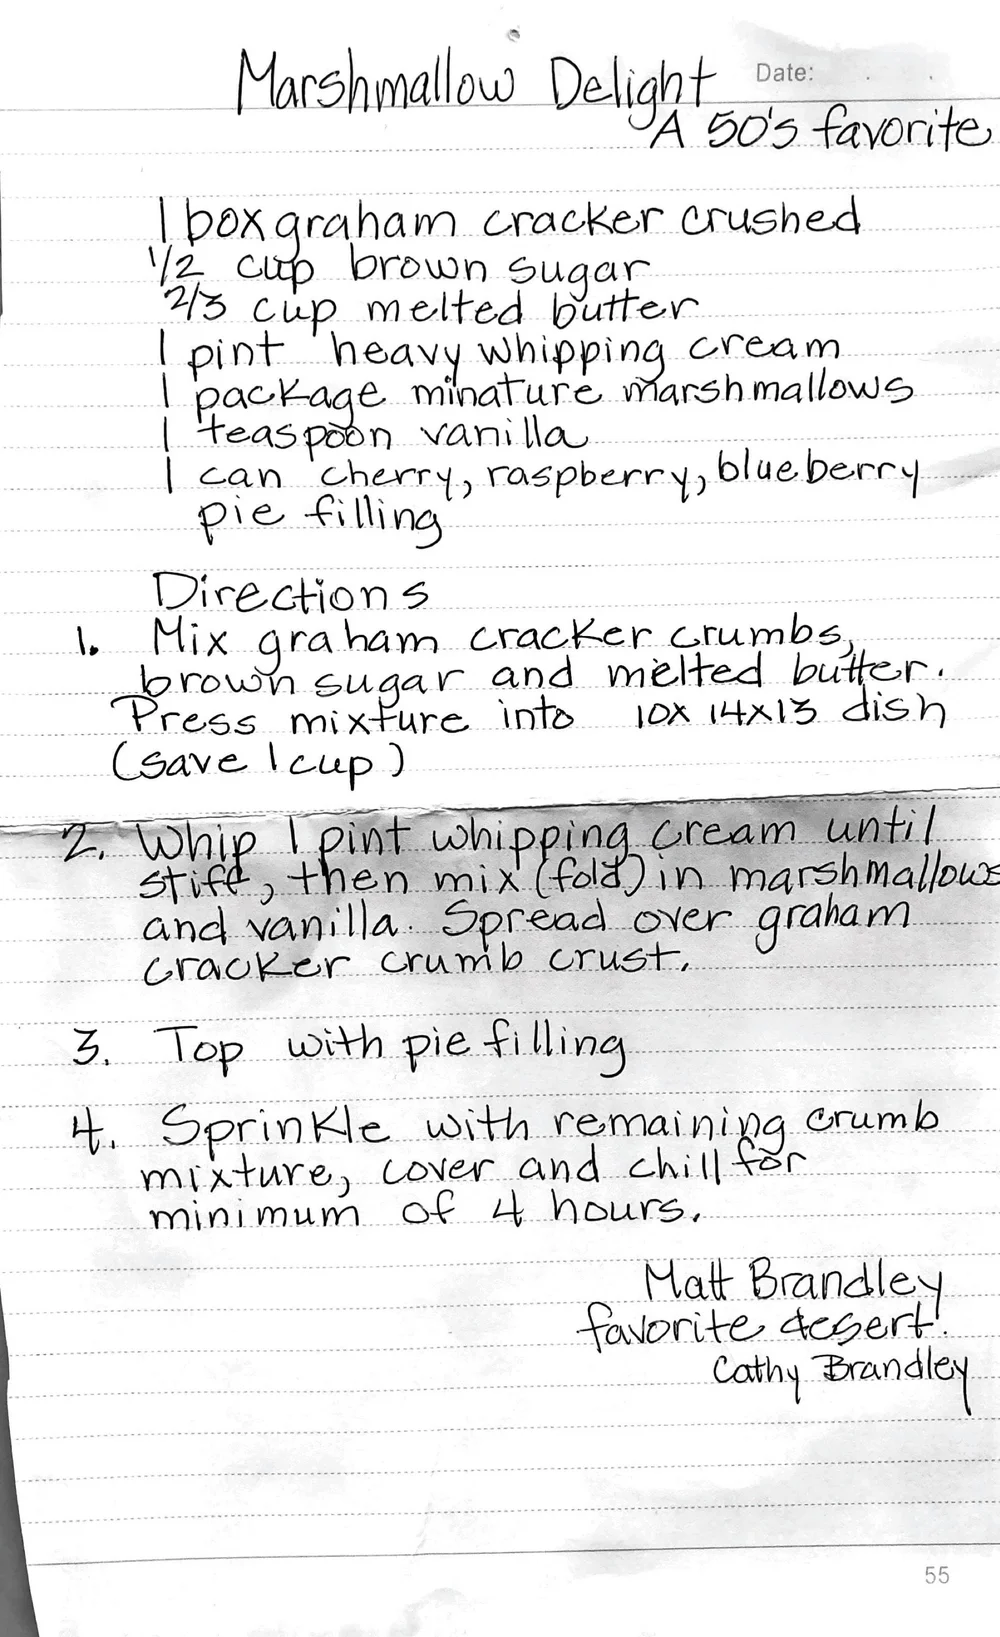 Marshmallow Delight Date:
A 50's favorite
1 box graham cracker crushed
1/2 cup brown sugar
2/3 cup melted butter
1 pint heavy whipping cream
1 package minature marshmallows
1 teaspoon vanilla
1 can cherry, raspberry, blueberry
pie filling
Directions
1. Mix graham cracker crumbs,
brown sugar and melted butter.
Press mixture into 10x 14x13 dish
(save 1 cup)
2. Whip 1 pint whipping cream until
stiff, then mix (fold) in marshmallows
and vanilla. Spread over graham
cracker crumb crust.
3. Top with pie filling
4. Sprinkle with remaining crumb
mixture, cover and chill for
minimum of 4 hours.
Matt Brandley
favorite desert!
Cathy Brandley
55